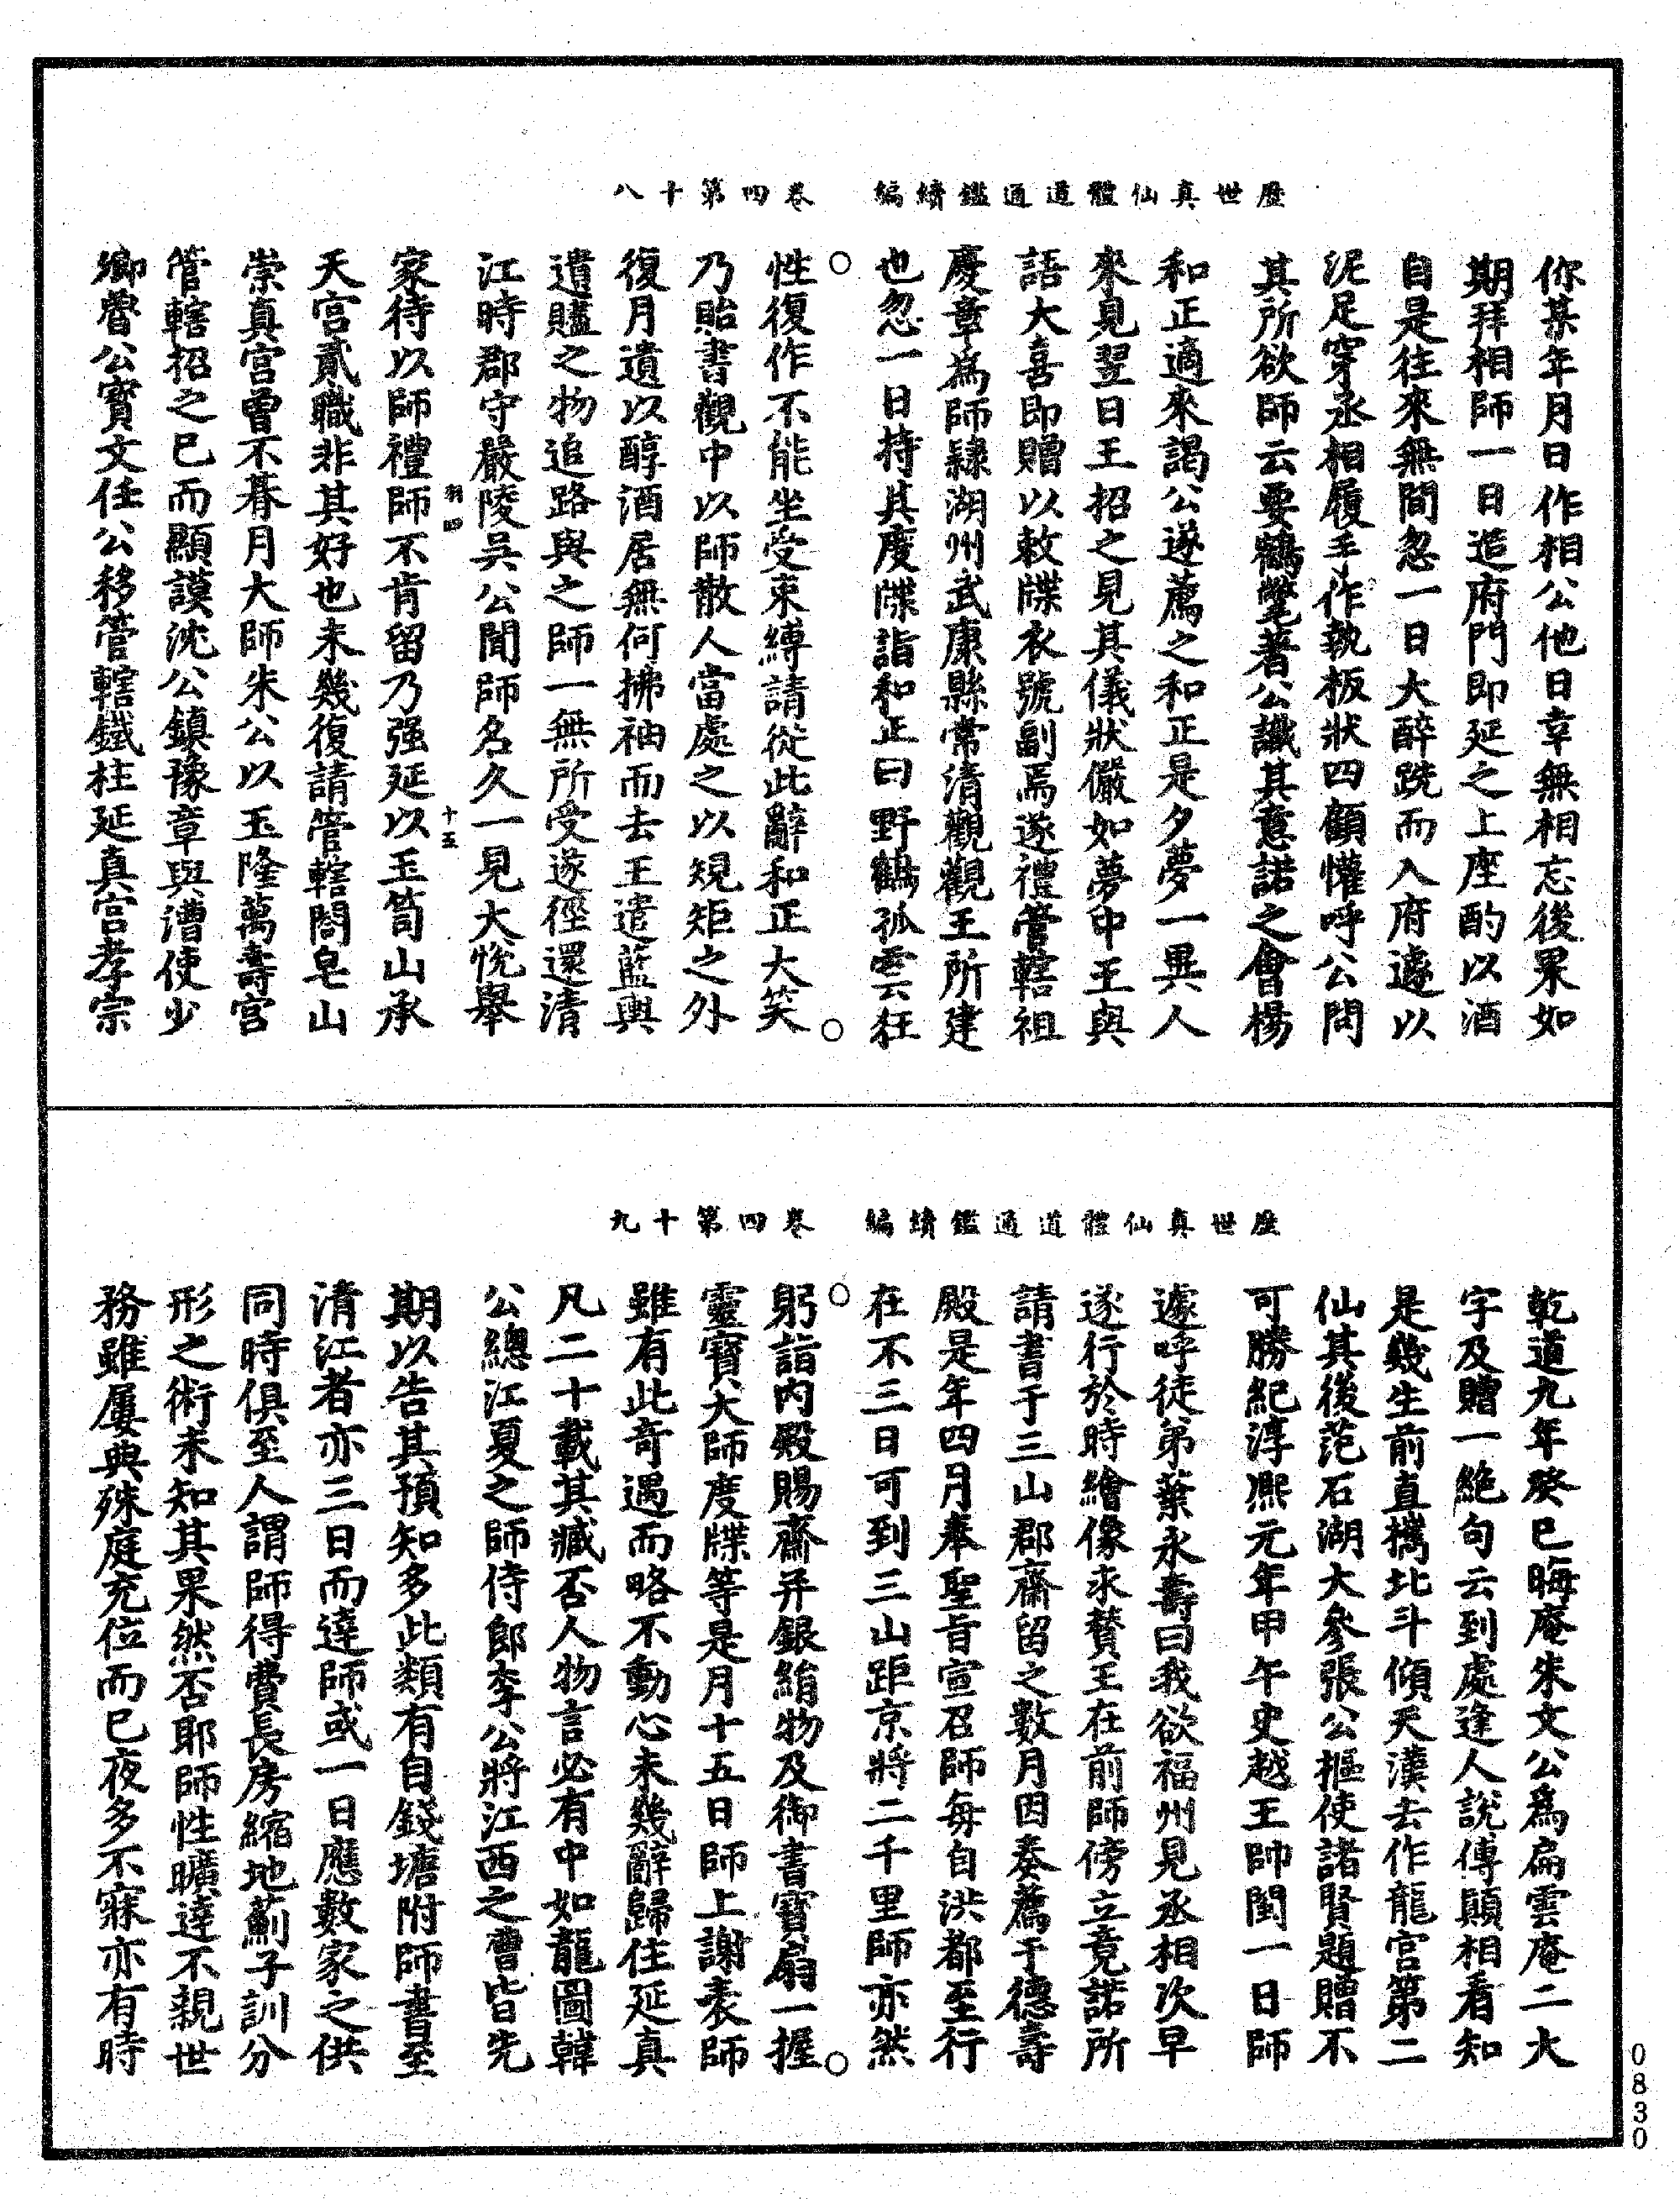 歷世真仙體道通鑑續編　卷四第十八
你某年月日作相公他日幸無相忘後果如
期拜相師一日造府門即延之上座酌以酒
自是往來無間忽一日大醉跣而入府遽以
泥足穿丞相履手作執板狀四顧懽呼公問
其所欲師云要鶴氅著公識其意諾之會楊
和正適來謁公遂薦之和正是夕夢一異人
來見翌日王招之見其儀狀儼如夢中王與
語大喜即贈以敕牒衣號副焉遂禮管轄祖
慶章為師隸湖州武康縣常清觀觀王所建
也忽一日持其度牒詣和正曰野鶴孤雲狂
性復作不能坐受束縛請從此辭和正大笑
乃貽書觀中以師散人當處之以規矩之外
復月遺以醇酒居無何拂袖而去王遣藍輿
遺贐之物追路與之師一無所受遂徑還清
江時郡守嚴陵吳公聞師名久一見大悅舉
羽四　十五
家待以師禮師不肯留乃强延以玉笥山承
天宮貳職非其好也未幾復請管轄閤皂山
崇真宮曾不暮月大師朱公以玉隆萬壽宮
管轄招之已而顯謨沈公鎮豫章與漕使少
卿曾公寶文任公移管轄鐵柱延真宮孝宗
歷世真仙體道通鑑續編　卷四第十九
乾道九年癸巳晦庵朱文公為扁雲庵二大
字及贈一絕句云到處逢人說傳顛相看知
是幾生前直攜北斗傾天漢去作龍宮第二
仙其後范石湖大參張公樞使諸賢題贈不
可勝紀淳熙元年甲午史越王帥閩一日師
遽呼徒弟葉永壽曰我欲福州見丞相次早
遂行於時繪像求贊王在前師傍立竟諾所
請書于三山郡齋留之數月因奏薦于德壽
殿是年四月奉聖旨宣召師每自洪都至行
在不三日可到三山距京將二千里師亦然
躬詣內殿賜齋并銀絹物及御書寶扇一握
靈寶大師度牒等是月十五日師上謝表師
雖有此奇遇而略不動心未幾辭歸住延真
凡二十載其臧否人物言必有中如龍圖韓
公總江夏之師侍郎李公將江西之曹皆先
期以告其預知多此類有自錢塘附師書至
清江者亦三日而達師或一日應數家之供
同時俱至人謂師得費長房縮地薊子訓分
形之術未知其果然否耶師性曠達不親世
務雖屢典殊庭充位而已夜多不寐亦有時
0830